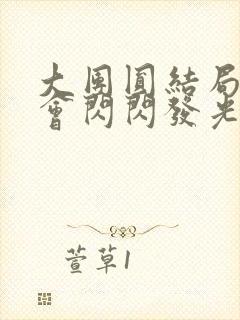 大團圓結局
會閃閃發光
萱草1